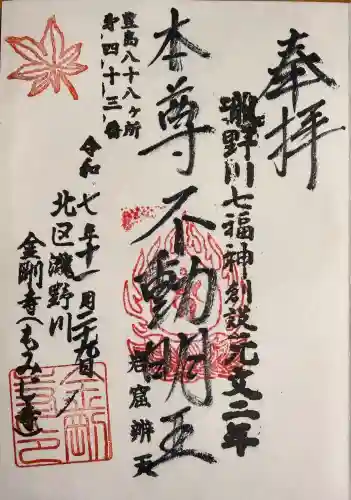 奉拝
瀧野川七福神創設元文二年
本尊不動明王
岩窟辨天
豊島八十八ヶ所
第四十三番
令和七年十一月二十九日
北区瀧野川
金剛寺(もみじ寺)
金剛
寺之印